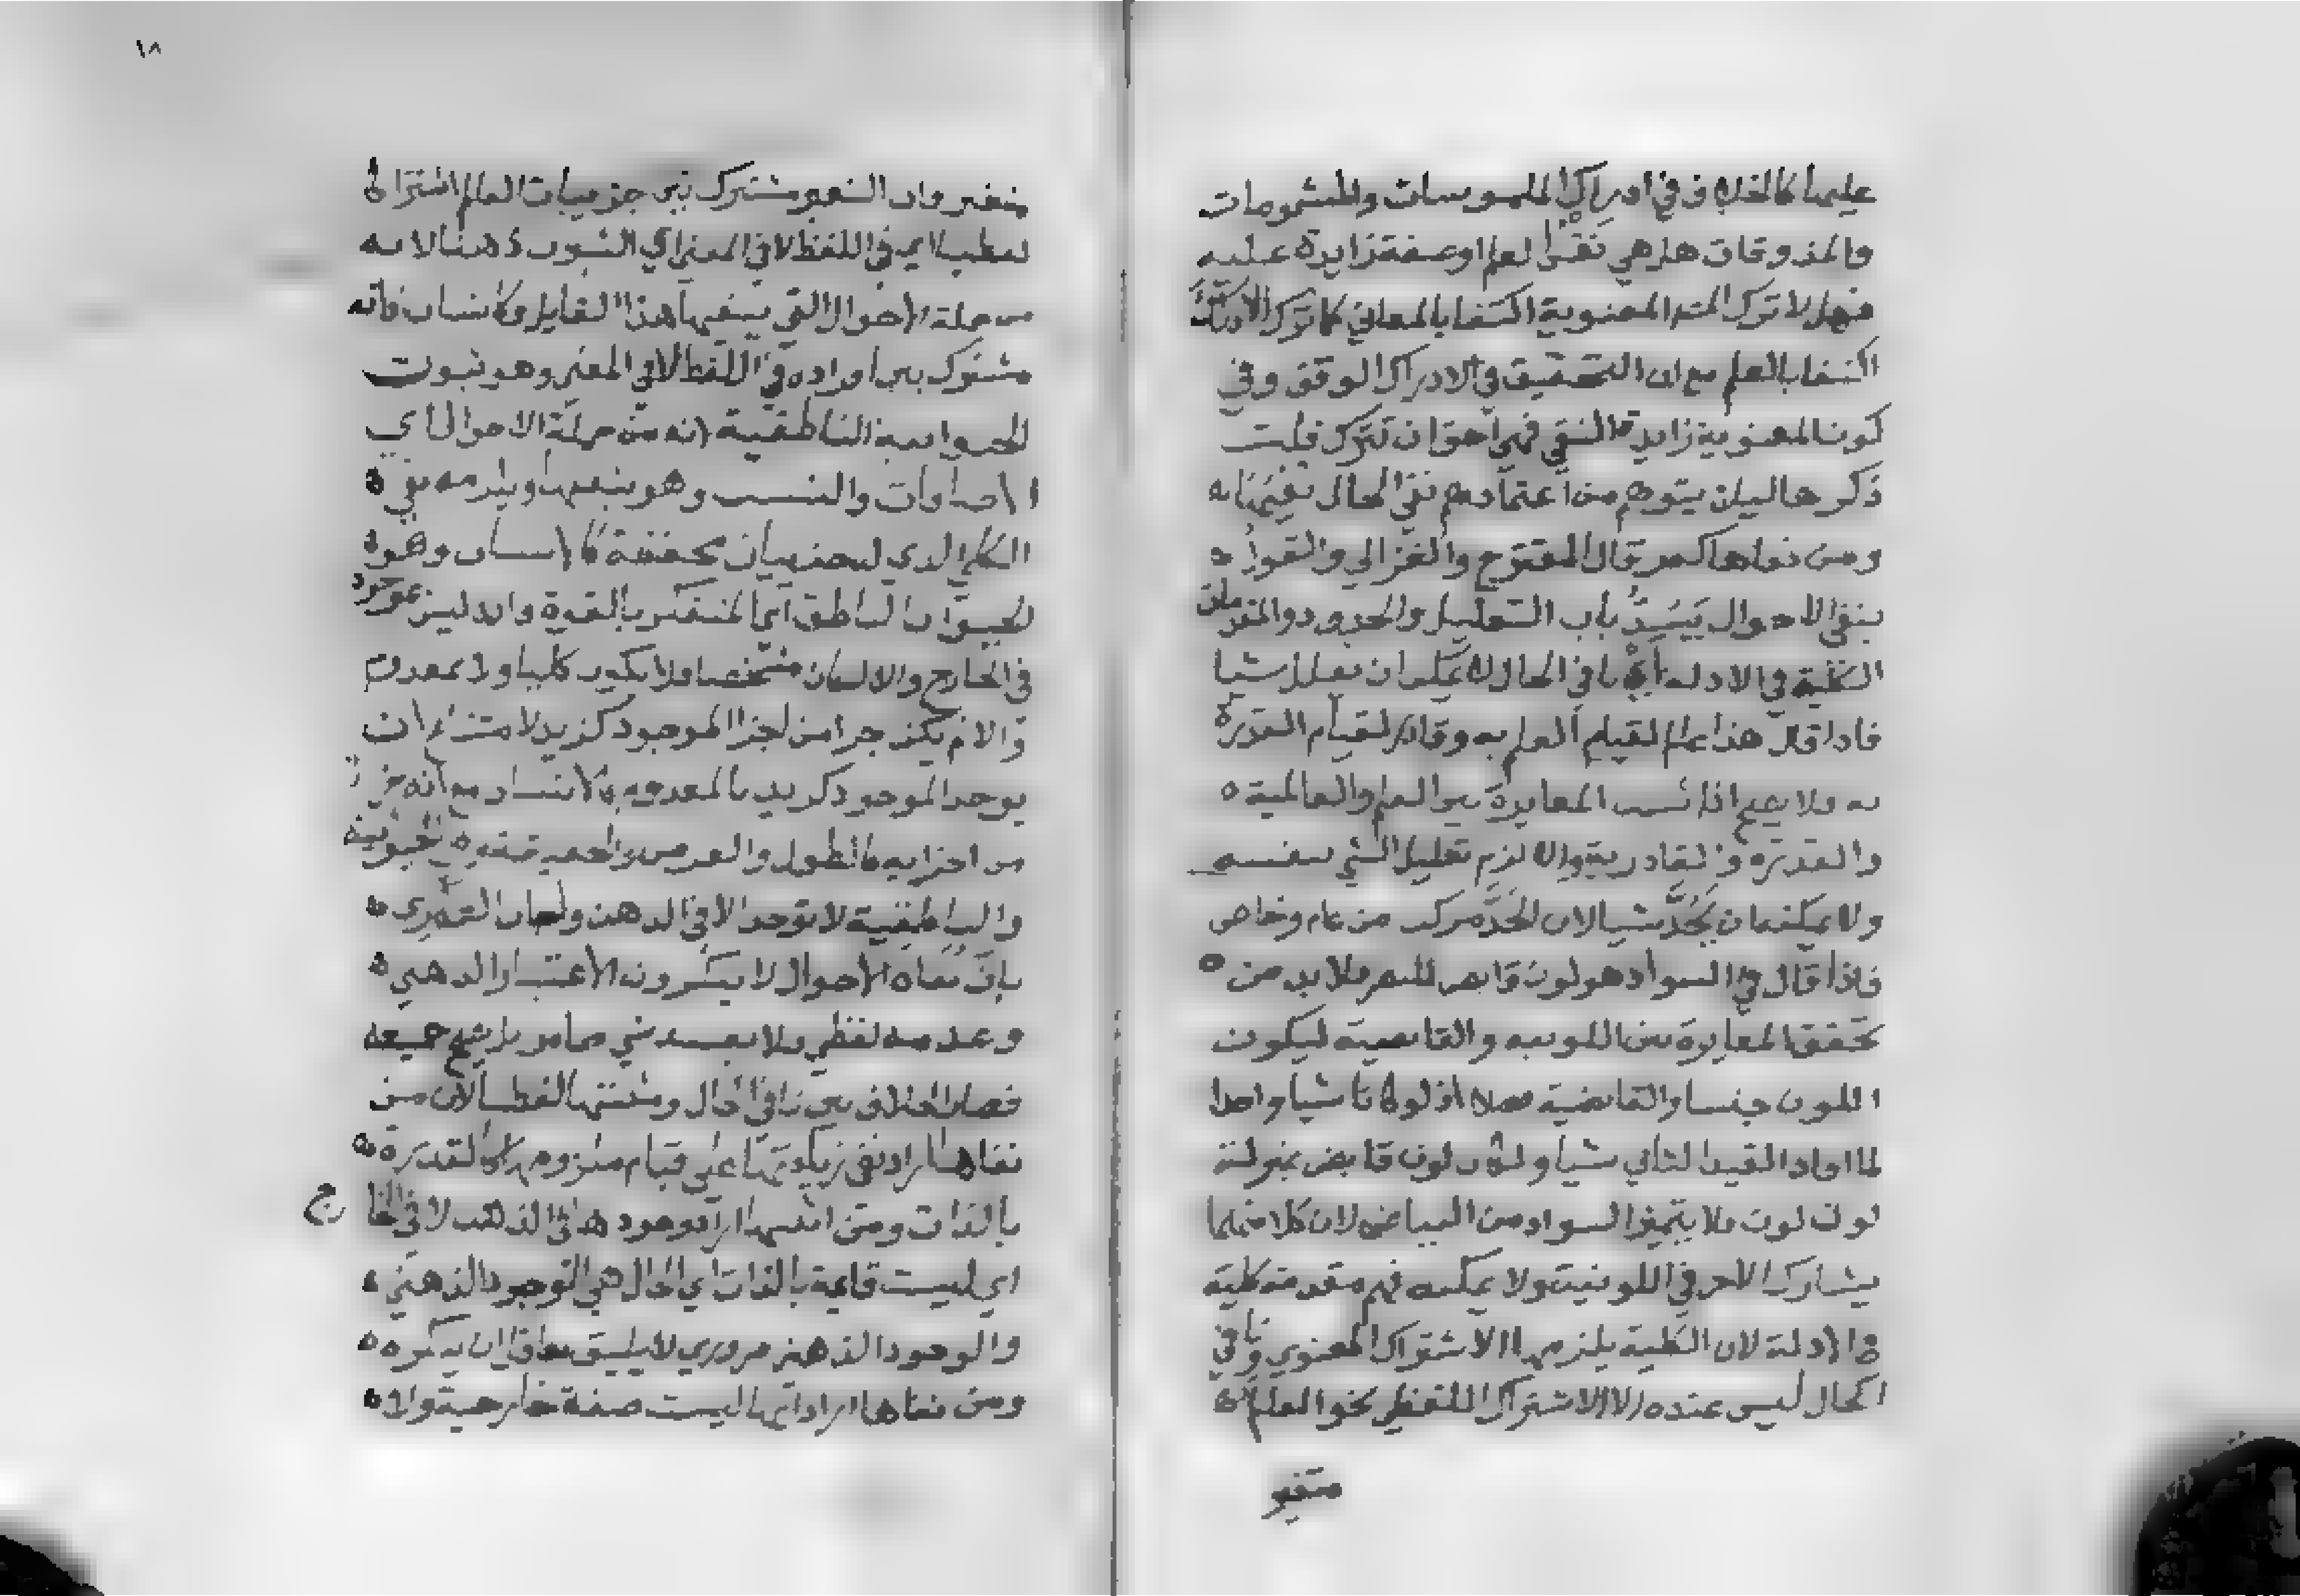 عليها كالخلاف في ادراك الملموسات والمشمومات
والمذوقات هل هي نفس العلم او صفة زايدة عليه
فهل لا ترك المتم المعنوية اكتفا بالمعاني كما ترك الادراك
اكتفا بالعلم مع ان التحقيق في الادراك الوقف وفي
كون المعنوية زايدة النفي فهي احق ان تترك قلت
ذكرها ليلا يتوهم من اعتمادهم نفي الحال نفيها
ومن نفاها كفر قال المقترح والغزالي والقول
بنفي الاحوال يسد باب التعليل والحدود والمقدمات
الكلية في الادلة اي نافي الحال لا يمكنه ان يعلل شيا
فاذا قال هذا عالم لقيام العلم به وقادر لقيام القدرة
به فلا يصح اذ ليست المغايرة بين العلم والعالمية
والقدرة والقادرية والا لزم تعليل الشي بنفسه
ولا يمكنه ان يحد شيا لان الحد مركب من عام وخاص
فاذا قال في السواد هو لون قابض للبصر فلا بد من
تحقق المغايرة بين اللونية والقابضية ليكون
اللون جنسا والقابضية فصلا اذ لو كانا شيا واحدا
لما افاد القيد الثاني شيا ولكان لون قابض بمنزلة
لون لون فلا يتميز السواد من البياض لان كلا منهما
يشارك الاخر في اللونية ولا يمكنه فهم مقدمة كلية
في الادلة لان الكلية يلزمها الاشتراك المعنوي ونافي
الحال ليس عنده الا الاشتراك اللفظي نحو العالم
متغير
١٨
متغير فان التغير مشترك بين جزييات العالم اشتراكا
لفظيا اي في اللفظ لا في المعنى اي الثبوت ذهنا لانه
من جملة الاحوال التي ينفيها هذا القايل وكانسان فانه
مشترك بين افراده في اللفظ لا في المعنى وهو ثبوت
الحيوانية الناطقية لانه من جملة الاحوال اي
الاضافات والنسب وهو ينفيها ويلزمه نفي
الكلي الذي لبعض جزييات محققة كالانسان وهو
الحيوان الناطق اي المتفكر بالقوة وانه ليس موجود
في الخارج والا لكان مشخصا فلا يكون كليا ولا معدوم
والا لم يكن جزا من الجزا الموجود كزيد لامتناع ان
يوجد الموجود كزيد بالمعدوم كالانسان مع انه جز
من اجزايه كالطول والعرض والحيوانية
والناطقية لا توجد الا في الذهن
بان نفاة الاحوال لا ينكرون الاعتبار الذهني
وعدمه لفظي فلا يفسد شي مما مر بل يصح جميعه
فصار الخلاف بين نافي الحال ومثبتها لفظيا لان من
نفاها اراد نفي زيادتها على قيام ملزومها كالقدرة
بالذات ومن اثبتها اراد وجودها في الذهن لا في الخارج
اي ليست قايمة بالذات اي الحال هي الوجود الذهني
والوجود الذهني ضروري لا يليق بعاقل ان ينكره
ومن نفاها اراد انها ليست صفة خارجية ولا